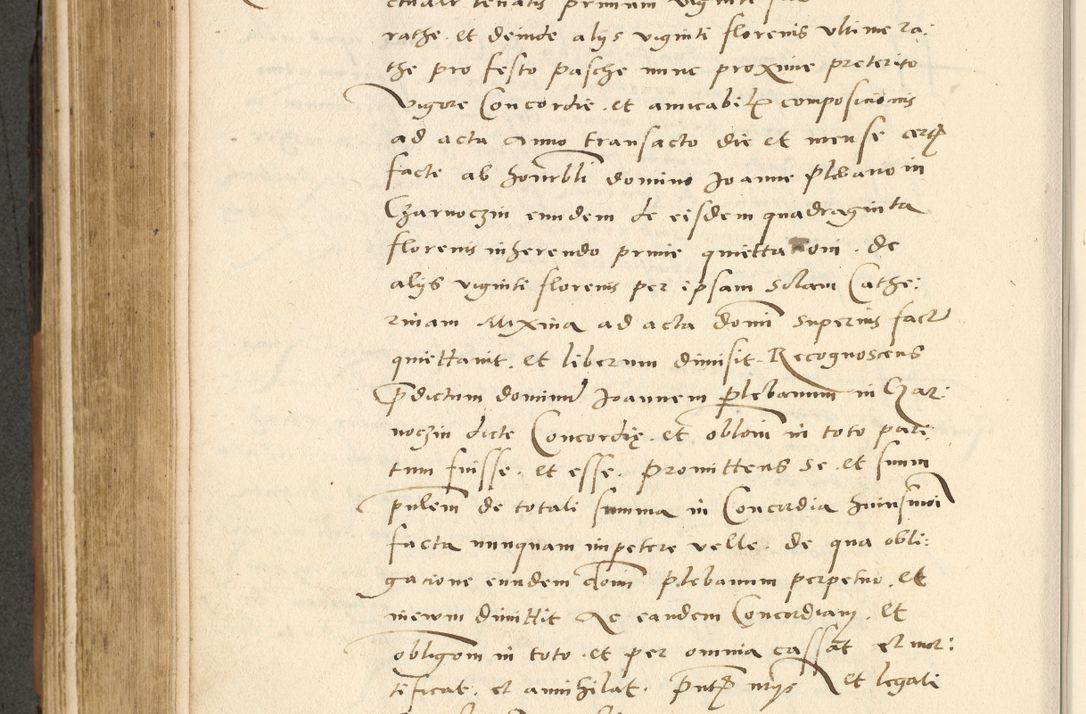 rathe et deinde alijs viginti florenis ultime ra:
the pro festo pasche nunc proxime preterito
Vigore Concordie et amicabilis compositionis
ad acta Anno transacto die et mense
facte ab honrbli domino Joanne plebano in
Czarnoczin eundem de eisdem quadraginta
florenis inherendo prime quietta oni de
alijs viginti florenis per ipsam solam Cathe:
rinam ad acta domi superius fact
quiettauit et liberum dimisit Recognoscens
pdictum dominu Joannem plebanum in Czar:
noczin dicte Concordię et obloni in toto pare
tum fuisse et esse promittens se et suum
pulem de totali summa in Concordia huiusmoi
facta nunquam impetere velle de qua obli:
gacione eundem dom plebanum perpetuo et
in ewm dimittit Ac eandem Concordiam et
obligom in toto et per omnia cassat et mor:
tificat et annihilat pntq nrijs et legali